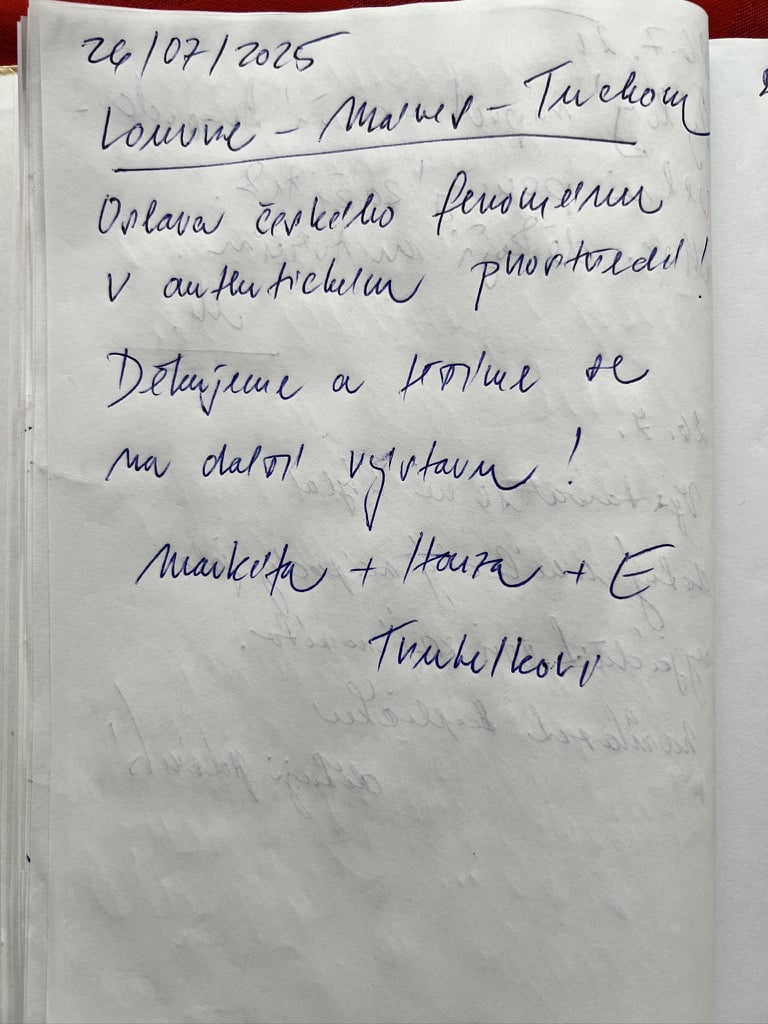 26/07/2025
Louvre - Manes - Tuchom
Oslava českého fenoménu
v autentickém prostředí!
Děkujeme a těšíme se
na další výstavu!
Markéta + Honza + E
Trubelkovi